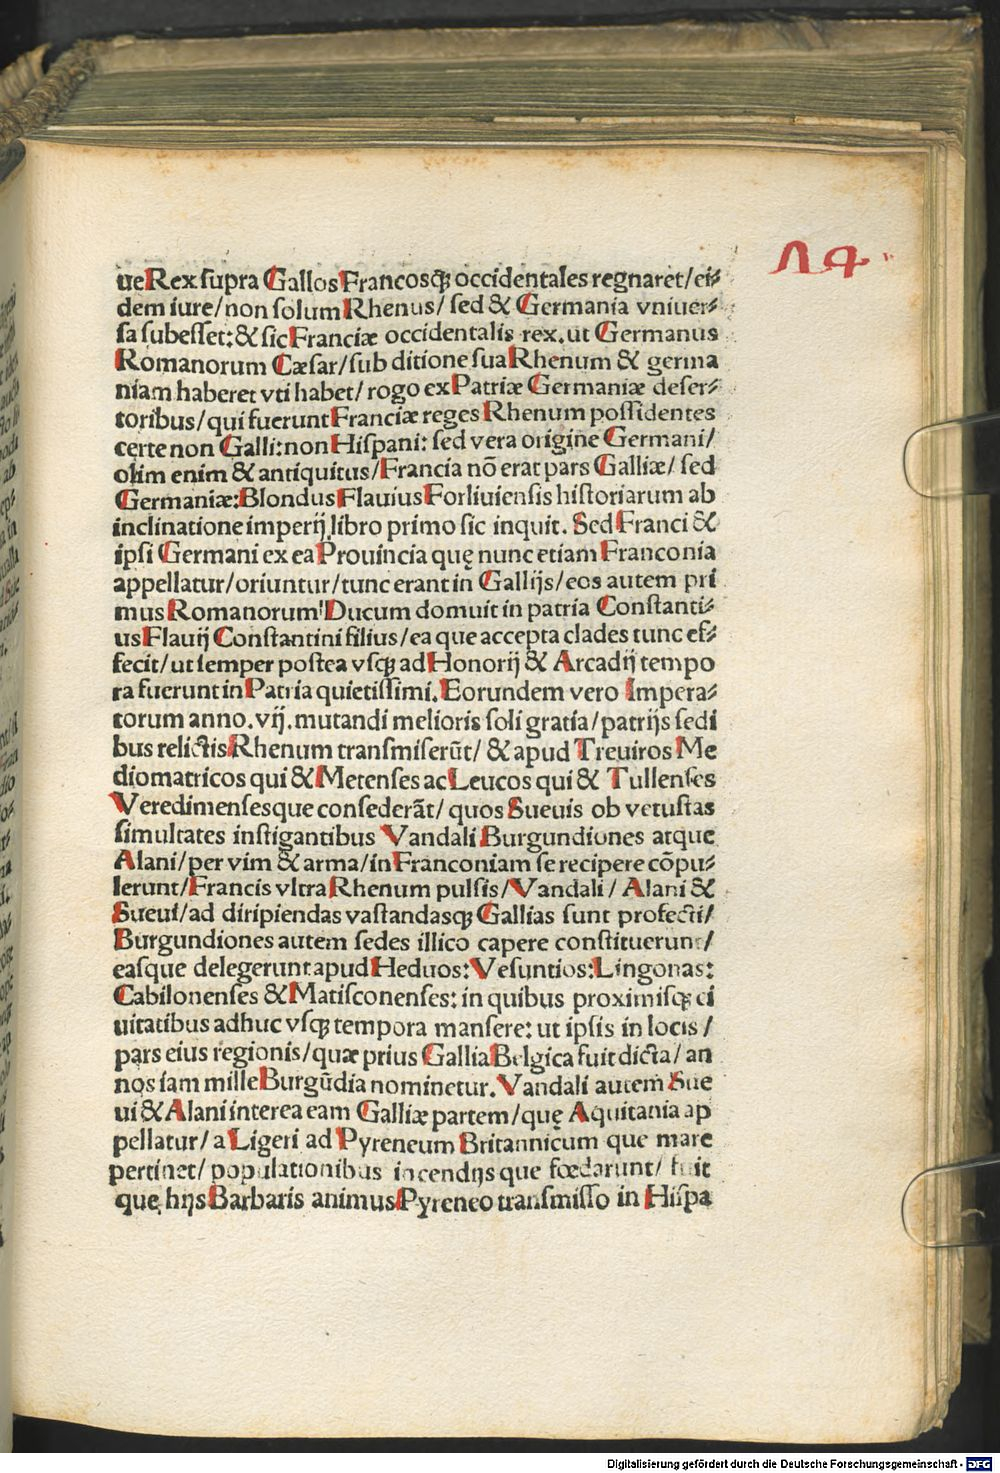 14.
ueRex ſupra Gallos Francosqꝫ occidentales regnaret/ei⸗
dem iure/non ſolum Rhenus/ ſed & Germania vniuer⸗
ſa ſubeſſet:& ſic Franciæ occidentalis rex.ut Germanus
Romanorum Cæſar/ſub ditione ſua Rhenum & germa
niam haberet vti habet/rogo ex Patriæ Germaniæ deſer⸗
toribus/qui fuerunt Franciæ reges Rhenum poſſidentes
certe non Galli:non Hiſpani: ſed vera origine Germani/
olim enim & antiquitus/Francia nõ erat pars Galliæ/ ſed
Germaniæ:Blondus Flauius Forliuienſis hiſtoriarum ab
inclinatione imperij libro primo ſic inquit. Sed Franci &
ipſi Germani ex ea Prouincia quę nunc etiam Franconia
appellatur/oriuntur/tunc erant in Gallijs/eos autem pri
mus Romanorum Ducum domuit in patria Conſtanti⸗
us Flauij Conſtantini filius/ea que accepta clades tunc ef⸗
fecit/ut ſemper poſtea vſqꝫ ad Honorij & Arcadij tempo
ra fuerunt in Patria quietiſſimi.Eorundem vero Impera⸗
torum anno.vij.mutandi melioris ſoli gratia/patrijs ſedi
bus relictis Rhenum tranſmiſerūt/ & apud Treuiros Me
diomatricos qui & Metenſes ac Leucos qui & Tullenſes
Veredimenſesque conſederãt/ quos Sueuis ob vetuſtas
ſimultates inſtigantibus Vandali Burgundiones atque
Alani/per vim & arma/in Franconiam ſe recipere cõpu⸗
lerunt/Francis vltra Rhenum pulſis/Vandali/ Alani &
Sueui/ad diripiendas vaſtandasqꝫ Gallias ſunt profecti/
Burgundiones autem ſedes illico capere conſtituerunt/
easque delegerunt apud Heduos:Veſuntios:Lingonas:
Cabilonenſes & Matiſconenſes: in quibus proximiſqꝫ ci
uitatibus adhuc vſqꝫ tempora manſere: ut ipſis in locis /
pars eius regionis/quæ prius Gallia Belgica fuit dicta/ an
nos iam mille Burgūdia nominetur.Vandali autem Sue
ui & Alani interea eam Galliæ partem/quę Aquitania ap
pellatur/a Ligeri ad Pyreneum Britannicum que mare
pertinet/ populationibus incendijs que fœdarunt/ fuit
que hijs Barbaris animus Pyreneo tranſmiſſo in Hiſpa
Digitalisierung gefördert durch die Deutsche Forschungsgemeinschaft - DFG